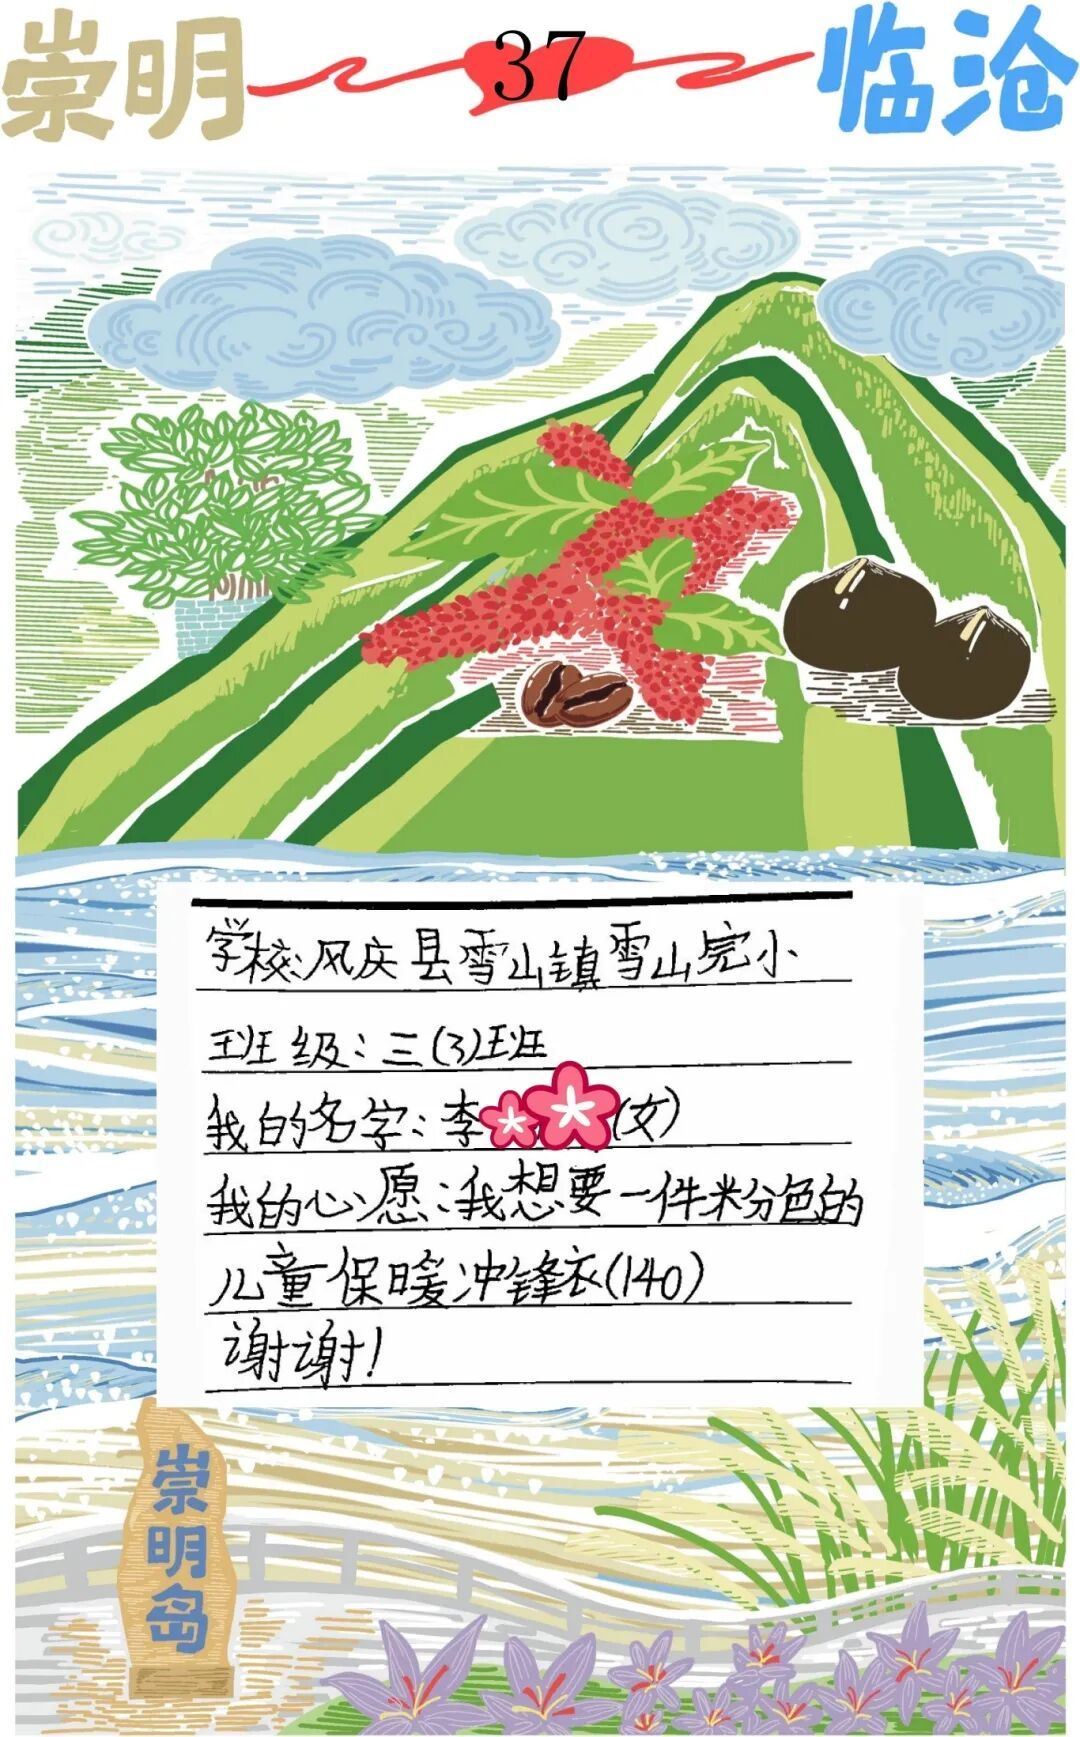 崇明 37 临沧
学校:风庆县雪山镇雪山完小
班级:三(3)班
我的名字:李(女)
我的心愿:我想要一件米分色的
儿童保暖冲锋衣(140)
谢谢!
崇明岛